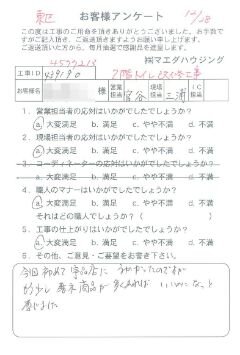 東区 お客様アンケート 10/28
この度は工事のご用命を頂きありがとうございました。お手数で
すがご記入頂き、ご返送頂きますようお願い申し上げます。
ご返送頂いた方から、毎月抽選で感謝品を送呈します。
㈱マエダハウジング
工事ID
2階トイレ改修工事
お客様名 様 営業担当 現場担当 三浦 IC担当
1. 営業担当者の応対はいかがでしたでしょうか?
a. 大変満足 b. 満足 c. やや不満 d. 不満
2. 現場担当者の応対はいかがでしたでしょうか?
a. 大変満足 b. 満足 c. やや不満 d. 不満
3. コーディネーターの応対はいかがでしたでしょうか?
a. 大変満足 b. 満足 c. やや不満 d. 不満
4. 職人のマナーはいかがでしたでしょうか?
a. 大変満足 b. 満足 c. やや不満 d. 不満
それはどの職人でしょうか? ( )
5. 工事の仕上がりはいかがでしたでしょうか?
a. 大変満足 b. 満足 c. やや不満 d. 不満
6. その他、ご意見・ご要望をお書き下さい。
今回初めて 店に うかがったのですが
もう少し 展示商品が 多くあれば いいかな と
感じました